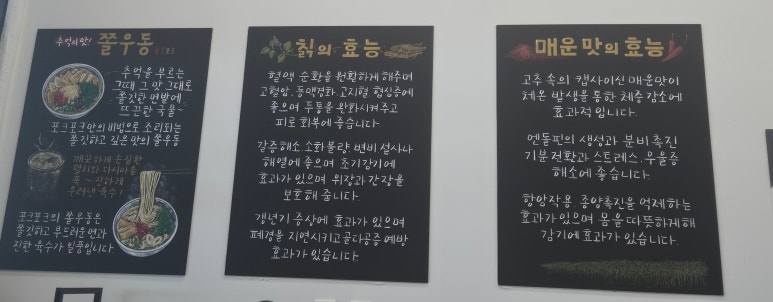 추억의 맛!
쫄우동
추억을 부르는
그때 그 맛 그대로
쫄깃한 면발에
뜨끈한 국물~
포크포크만의 비법으로 조리되는
쫄깃하고 깊은 맛의 쫄우동
깨끗하게 손질한
멸치와 다시마를
푹~ 진하게
우려낸 육수!
포크포크의 쫄우동은
쫄깃하고 부드러운 면과
진한 육수가 일품입니다
칡의 효능
혈액 순환을 원활하게 해주며
고혈압, 동맥경화, 고지혈, 협심증에
좋으며 두통을 완화시켜주고
피로 회복에 좋습니다.
갈증해소 소화불량 변비 설사나
해열에 좋으며 초기감기에
효과가 있으며 위장과 간장을
보호해 줍니다.
갱년기 증상에 효과가 있으며
폐경을 지연시키고 골다공증 예방
효과가 있습니다.
매운맛의 효능
고추 속의 캡사이신 매운맛이
체온 발생을 통한 체중감소에
효과적입니다.
엔돌핀의 생성과 분비 촉진
기분전환과 스트레스, 우울증
해소에 좋습니다.
항암작용 종양촉진을 억제하는
효과가 있으며 몸을 따뜻하게해
감기에 효과가 있습니다.